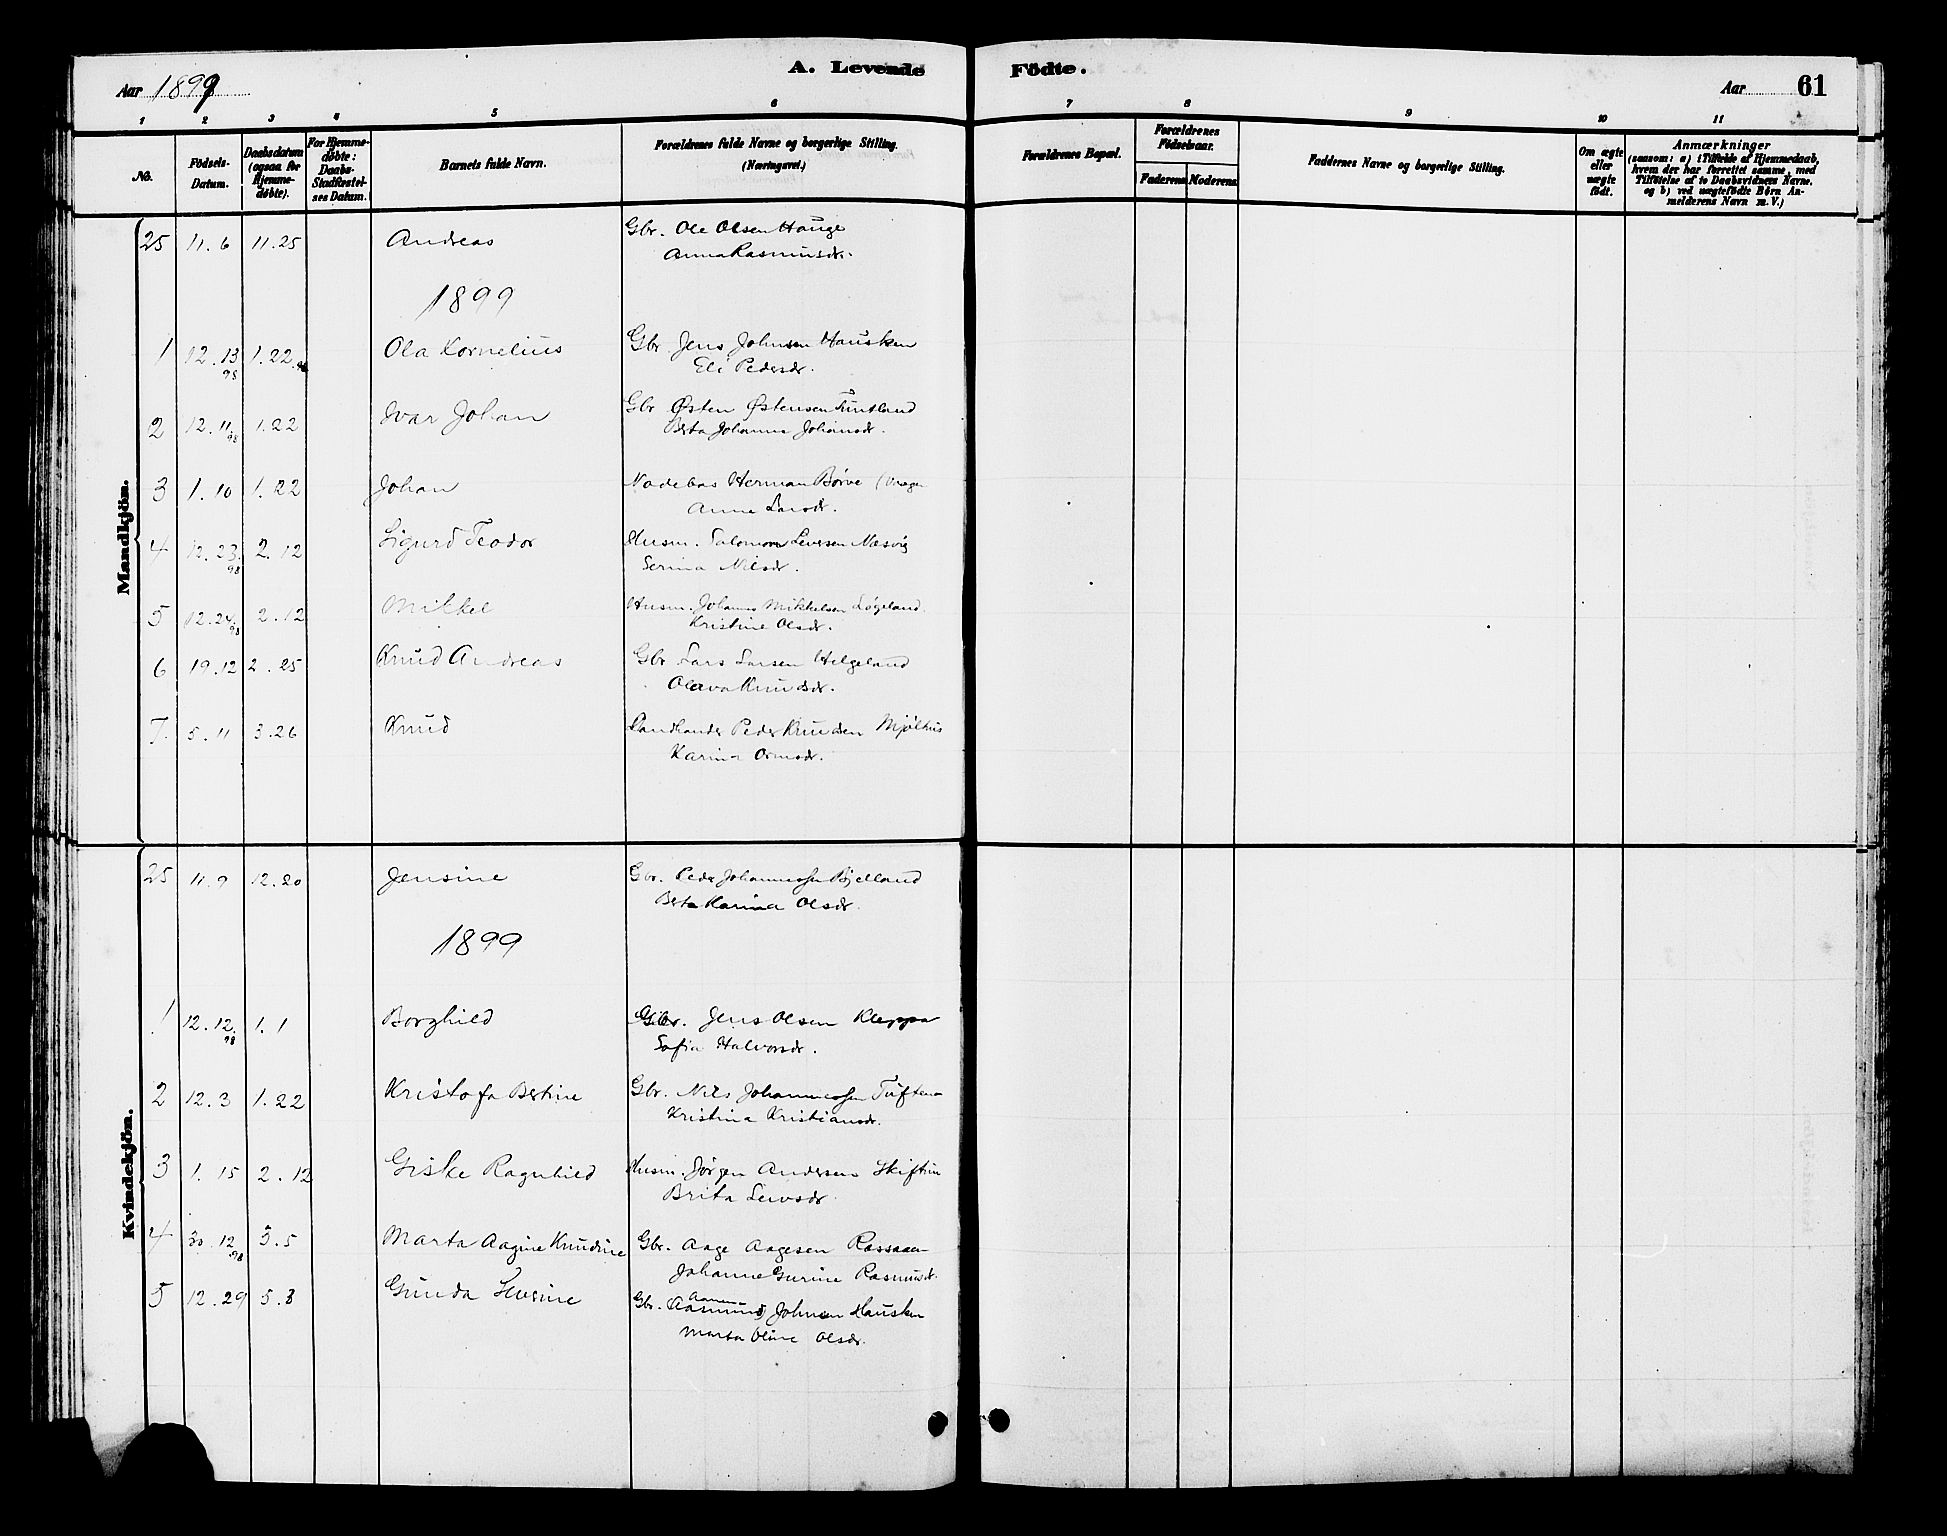 A. Levende Födte.
Aar 1899
Aar 61
1 2 3 4 5 6 7 8 9 10 11
No.
Födsels-
Datum.
Daabsdatum
(ogsaa for
Hjemme-
döbte).
For Hjemme-
döbte:
Daabs-
Stadfæstel-
ses Datum.
Barnets fulde Navn.
Forældrenes fulde Navne og borgerlige Stilling.
(Næringsvei.)
Forældrenes Bopæl.
Forældrenes
Födselsaar.
Faderens
Moderens.
Faddernes Navne og borgerlige Stilling.
Om ægte
eller
uægte
födt.
Anmærkninger
(saasom: a) i Tilfælde af Hjemmedaab,
hvem der har forrettet samme, med
Tilföielse af to Daabsvidners Navne,
og b) ved uægtefödte Börn An-
melderens Navn m. V.)
Mandkjön.
25 11.6 11.25 Andreas Gbr. Ole Olsen Hauge
Anna Rasmusdr.
1899
1 12.13 98 1.22 Ola Kornelius Gbr. Jens Johnsen Hausken
Eli Pedersdr.
2 12.11 98 1.22 Ivar Johan Gbr Østen Østensen Tuntland
Berta Johanne Johansdr.
3 1.10 1.22 Johan Herman Børve
Anne Larsdr.
4 12.23 98 2.12 Sigurd Teodor Husm. Salomon Næsvig
Serina Nilsdr.
5 12.24 98 2.12 Mikkel Husm. Johannes Mikkelsen Løgeland
Kristine Olsdr.
6 19.12 2.25 Knud Andreas Gbr Lars Larsen Helgeland
Olava Knudsdr.
7. 5.11 3.26 Knud Peder Knudsen Mjølhus
Karina Ormsdr.
Kvindekjön.
25 11.9 12.20 Jensine Gbr. Peder Johannessen Bjelland
Berta Karina Olsdr.
1899
1 12.12. 98 1.1 Borghild Gbr. Jens Olsen Kleppa
Sofia Halvorsdr.
2 12.3 1.22 Kristofa Bertine Gbr. Nils Johannessen Tuftene
Kristina Kristiansdr.
3 1.15 2.12 Giske Ragnhild Husm. Jørgen Andersen Skiftun
Brita
4 30.12 98 3.5 Marta Aagine Knudine Gbr. Aage Aagesen
Johanne Gurine Rasmusdr.
5 12.29 5.3 Gunda Gbr. Aasmund Johnsen Hausken
Marta Oline Olsdr.